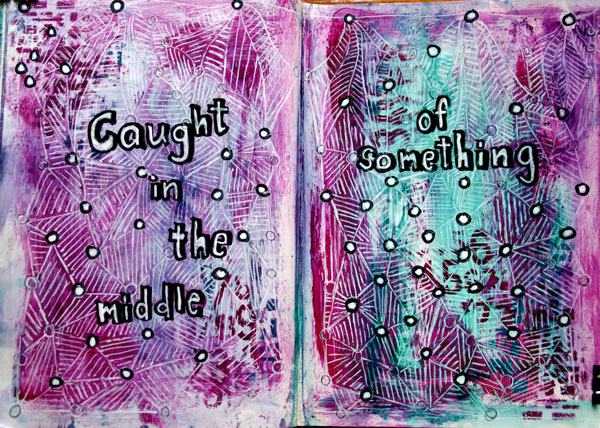 Caught
in
the
middle
of
something